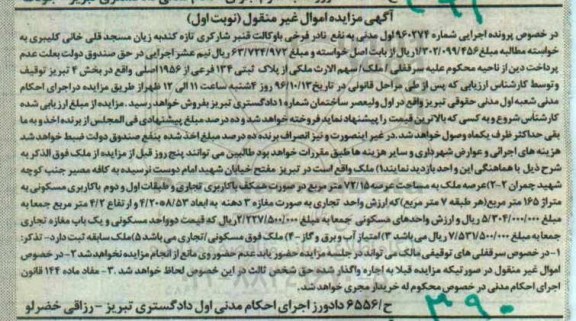 آگهی مزایده اموال غیر منقول (نوبت اول)
در خصوص پرونده اجرایی شماره ۹۶۰۲۷۴ اول مدنی به نفع نادر فرخی باوکالت قنبر شارکری تازه کندبه زیان مسجد قلی خانی کلیبری به
خواسته مطالبه مبلغ ۱/۳۰۲/۰۹۹/۴۵۶ ریال از بابت اصل خواسته و مبلغ ۶۳/۷۲۴/۹۷۲ ریال نیم عشر اجرایی در حق صندوق دولت بعلت عدم
پرداخت دین از ناحیه محکوم علیه سرقفلی / ملک/ سهم الارث ملکی از پلاک ثبتی ۱۳۴ فرعی از ۱۹۵۶ اصلی واقع در بخش ۴ تبریز توقیف
و توسط کارشناس ارزیابی که پس از طی مراحل قانونی در تاریخ ۹۶/۱۰/۱۳ روز ۴شنبه ساعت ۱۱ الی ۱۲ ظهر از طریق مزایده دراجرای احکام
مدنی شعبه اول مدنی حقوقی تبریز واقع در اول ولیعصر ساختمان شماره ۱ دادگستری تبریز بفروش خواهد رسید. مزایده از مبلغ ارزیابی شده
کارشناس شروع و به کسی که بالاترین قیمت را پیشنهاد نماید فروخته خواهد شد و ده درصد مبلغ پیشنهادی فی المجلس از برنده اخذ و به ما
بقی حداکثر ظرف یکماه وصول خواهد شد. در غیر اینصورت و نیز انصراف برنده ده درصد مبلغ اخذ شده بنفع صندوق دولت ضبط خواهد شد
هزینه های اجرائی و عوارض شهرداری و سایر هزینه ها طبق مقررات خواهد بود طالبین می توانند پنج روز قبل از مزایده از ملک فوق الذکر به
شرح ذیل با هماهنگی این واحد بازدید نمایند۱) ملک واقع است در تبریز مفتح خیابان شهید امام دوست نرسیده به کافه مسیر جنب کوچه
شهید چمران ۲-۲)عرصه ملک به مساحت عرصه ۷۲/۱۵ متر مربع در صورت همکف باکاربری تجاری و طبقات اول و دوم باکاربری مسکونی به
متراژ ۱۶۵ متر مربع(هر طبقه ۷ متر مربع)که ارزش واحد تجاری به صورت مغازه ۳ دهنه به ابعاد ۸/۵۳*۴/۲۰ و ارتفاع ۴/۲ متر مربع جمعا به
مبلغ ۵/۳۰۴/۰۰۰/۰۰۰ ریال و ارزش واحدهای مسکونی جمعا به مبلغ ۲/۲۲۷/۵۰۰/۰۰۰ریال که قیمت دوواحد مسکونی و یک باب مغازه تجاری
جمعا به مبلغ ۷/۵۳۱/۵۰۰/۰۰۰ ریال می باشد ۳)امتیاز آب و برق و گاز-۴) ملک فوق مسکونی/تجاری می باشد ۵)ملک سابقه ثبت دارد- تذکر:
۱-در خصوص سرقفلی های توقیفی مالک می تواند در جلسه مزایده حضور یابد عدم حضور وی مانع از انجام مزایده نخواهد شد ۲-در خصوص
اموال غیر منقول در صورتیکه مزایده قبلا به اجاره واگذار شده حق شخص ثالث در این خصوص لحاظ خواهد شد.۳- مفاد ماده ۱۴۴ قانون
اجرای احکام مدنی در خصوص محکوم له خریدار مجری خواهد شد.
ح/۶۵۵۶ دادورز اجرای احکام مدنی اول دادگستری تبریز - رزاقی خضرلو
۳۹۰